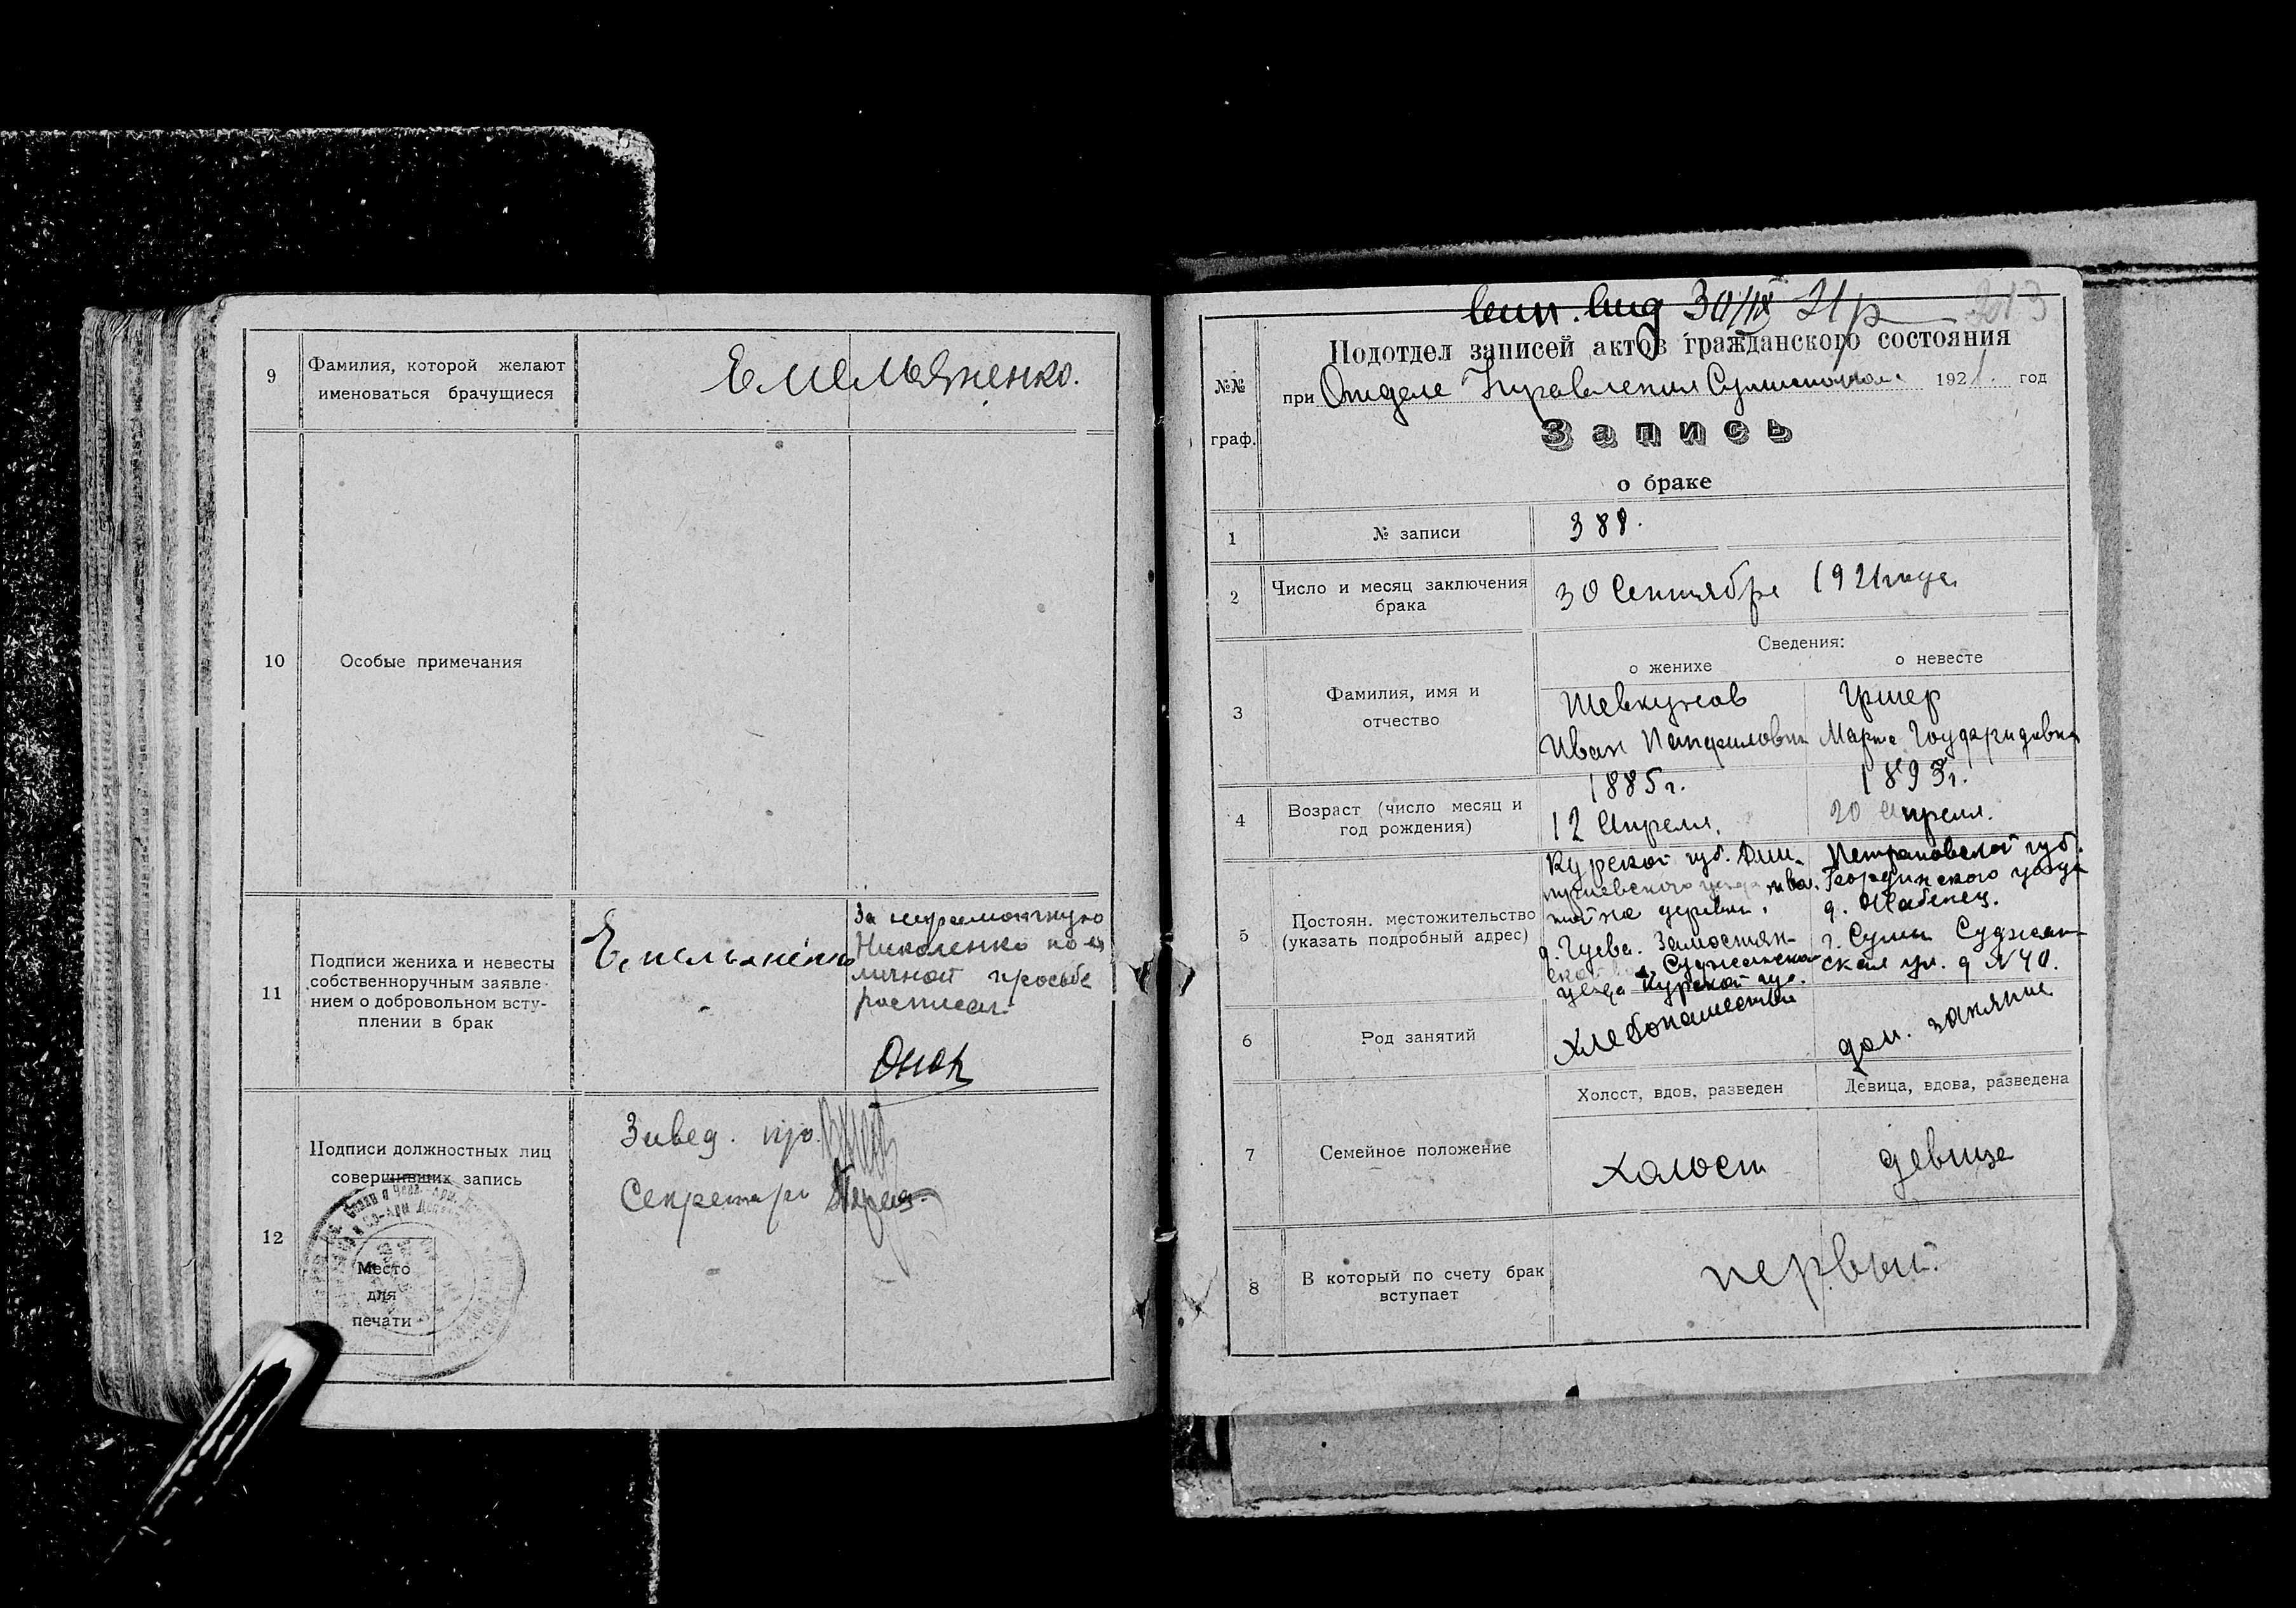 9
Фамилия, которой желают
именоваться брачущиеся
Емельяненко.
10
Особые примечания
11
Подписи жениха и невесты
собственноручным заявле-
нием о добровольном всту-
плении в брак
Емельяненко
За неграмотную
Николенко по ея
личной просьбе
росписал
12
Подписи должностных лиц
совершивших запись
Место
для
печати
Завед.
Секретарь
30/IX 21
213
№№
граф.
Подотдел записей актов гражданского состояния
при Отделе Управления 1921. год
Запись
о браке
1
№ записи
389.
2
Число и месяц заключения
брака
30 Сентября 1921 года
Сведения:
о женихе
о невесте
3
Фамилия, имя и
отчество
Шевкунов
Иван Панфилович
Марта
4
Возраст (число месяц и
год рождения)
1885 г.
12 Апреля.
1893 г.
20 Апреля.
5
Постоян. местожительство
(указать подробный адрес)
Курской губ. Дми-
деревни,
д. Гуева. Замостян-
ской Суджанского
уезда Курской губ.
Петраковской губ.
уезда
г. Сумы Суджан-
ская ул. д N 40.
6
Род занятий
Хлебопашество
дом. занятие
7
Семейное положение
Холост, вдов, разведен
Девица, вдова, разведена
холост
девица
8
В который по счету брак
вступает
первый.